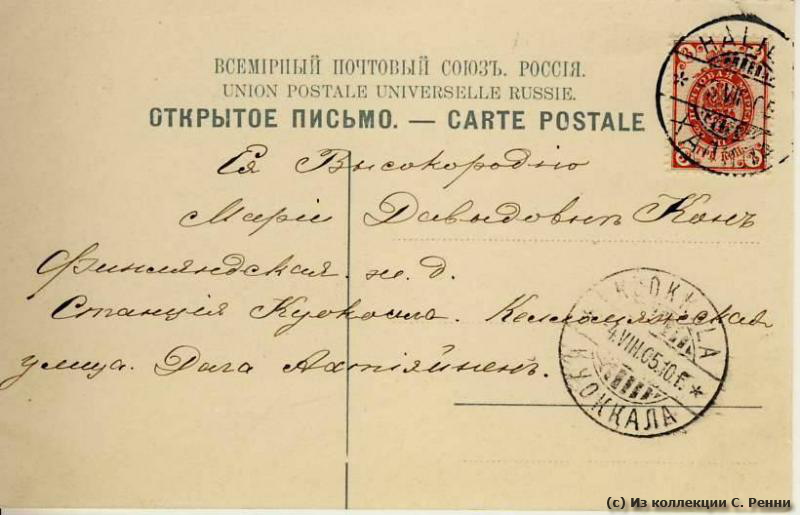 ВСЕМІРНЫЙ ПОЧТОВЫЙ СОЮЗЪ. РОССІЯ.
UNION POSTALE UNIVERSELLE RUSSIE.
ОТКРЫТОЕ ПИСЬМО. — CARTE POSTALE
Ея Высокородію
Маріи Давыдовнѣ Конъ
Финляндская. ж. д.
Станція Куоккала. Келломякская
улица. Дача Ахтіяйненъ.
KUOKKALA
4.VIII.05.10.F.
КУОККАЛА
(c) Из коллекции С. Ренни